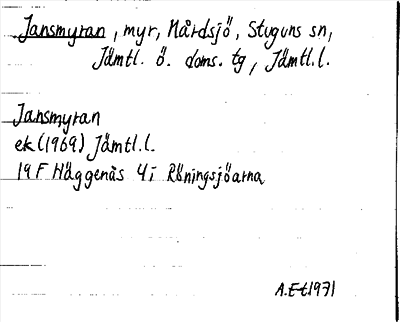 Jansmyran, myr, Mårdsjö, Stuguns sn,
Jämtl. ö. doms. tg, Jämtl.l.
Jansmyran
ek (1969) Jämtl.l.
19 F Häggenås 4i Röningsjöarna
A.E-t 1971